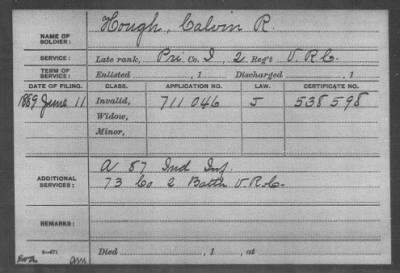 NAME OF SOLDIER: Hough, Calvin R.
SERVICE: Late rank, Pri Co. I, 2 Reg't V.R.C.
TERM OF SERVICE: Enlisted , 1 Discharged , 1
DATE OF FILING. CLASS. APPLICATION NO. LAW. CERTIFICATE NO.
1889 June 11 Invalid, 711 046 J 538 598
Widow,
Minor,
ADDITIONAL SERVICES: A 87 Ind Inf.
73 Co 2 Batt V.R.C.
REMARKS:
Died , 1 , at